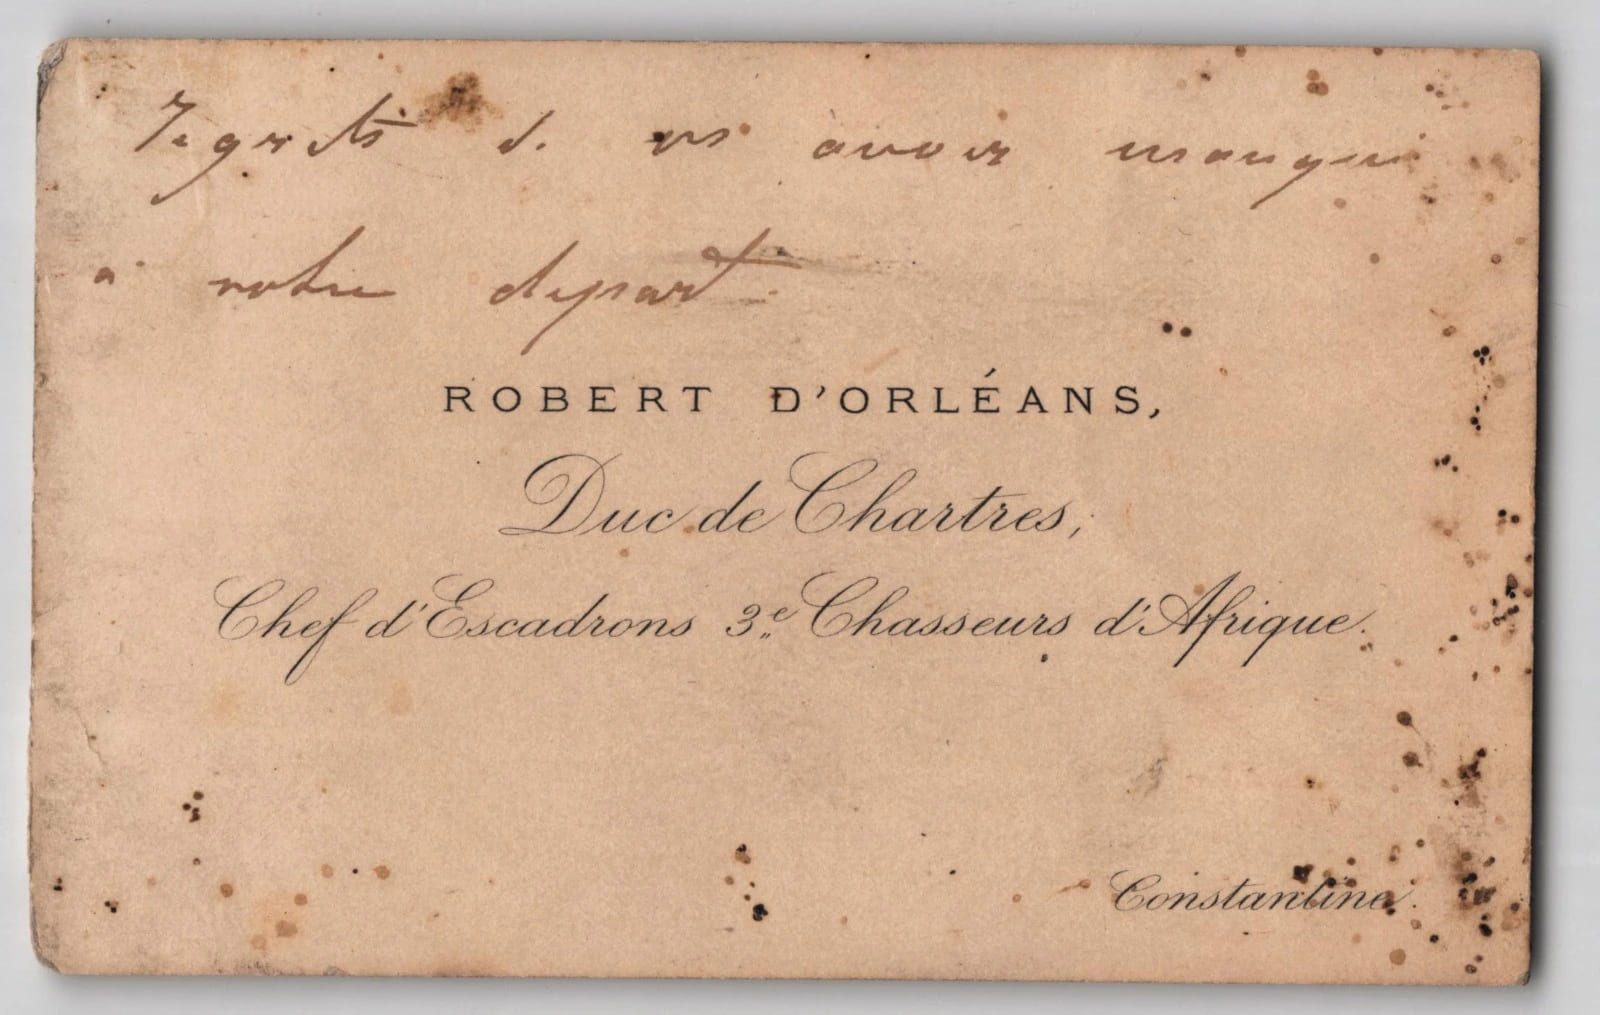 Regrets de vs avoir manqué
à votre départ.
ROBERT D'ORLÉANS,
Duc de Chartres,
Chef d'Escadrons 3e Chasseurs d'Afrique.
Constantine.